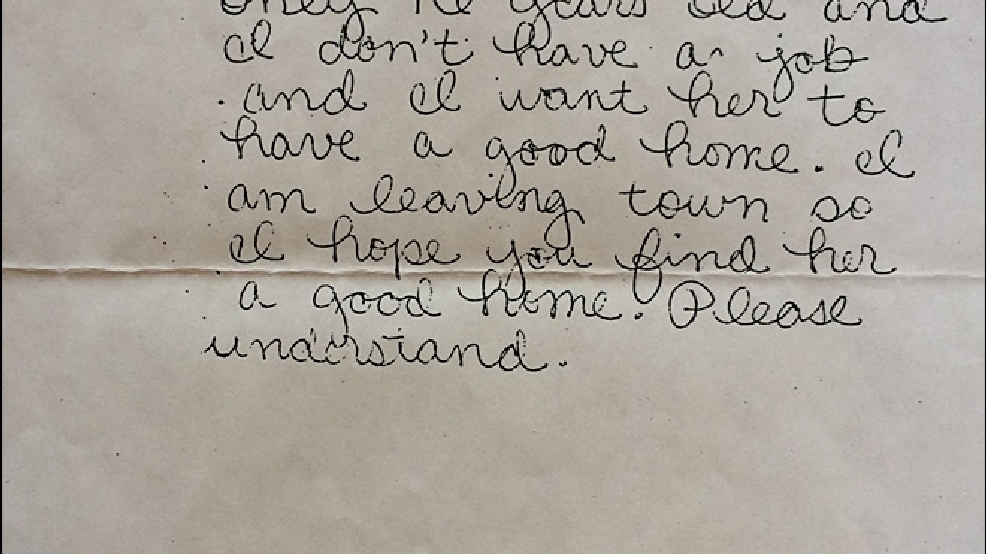 only years old and
I don't have a job
and I want her to
have a good home. I
am leaving town so
I hope you find her
a good home. Please
understand.